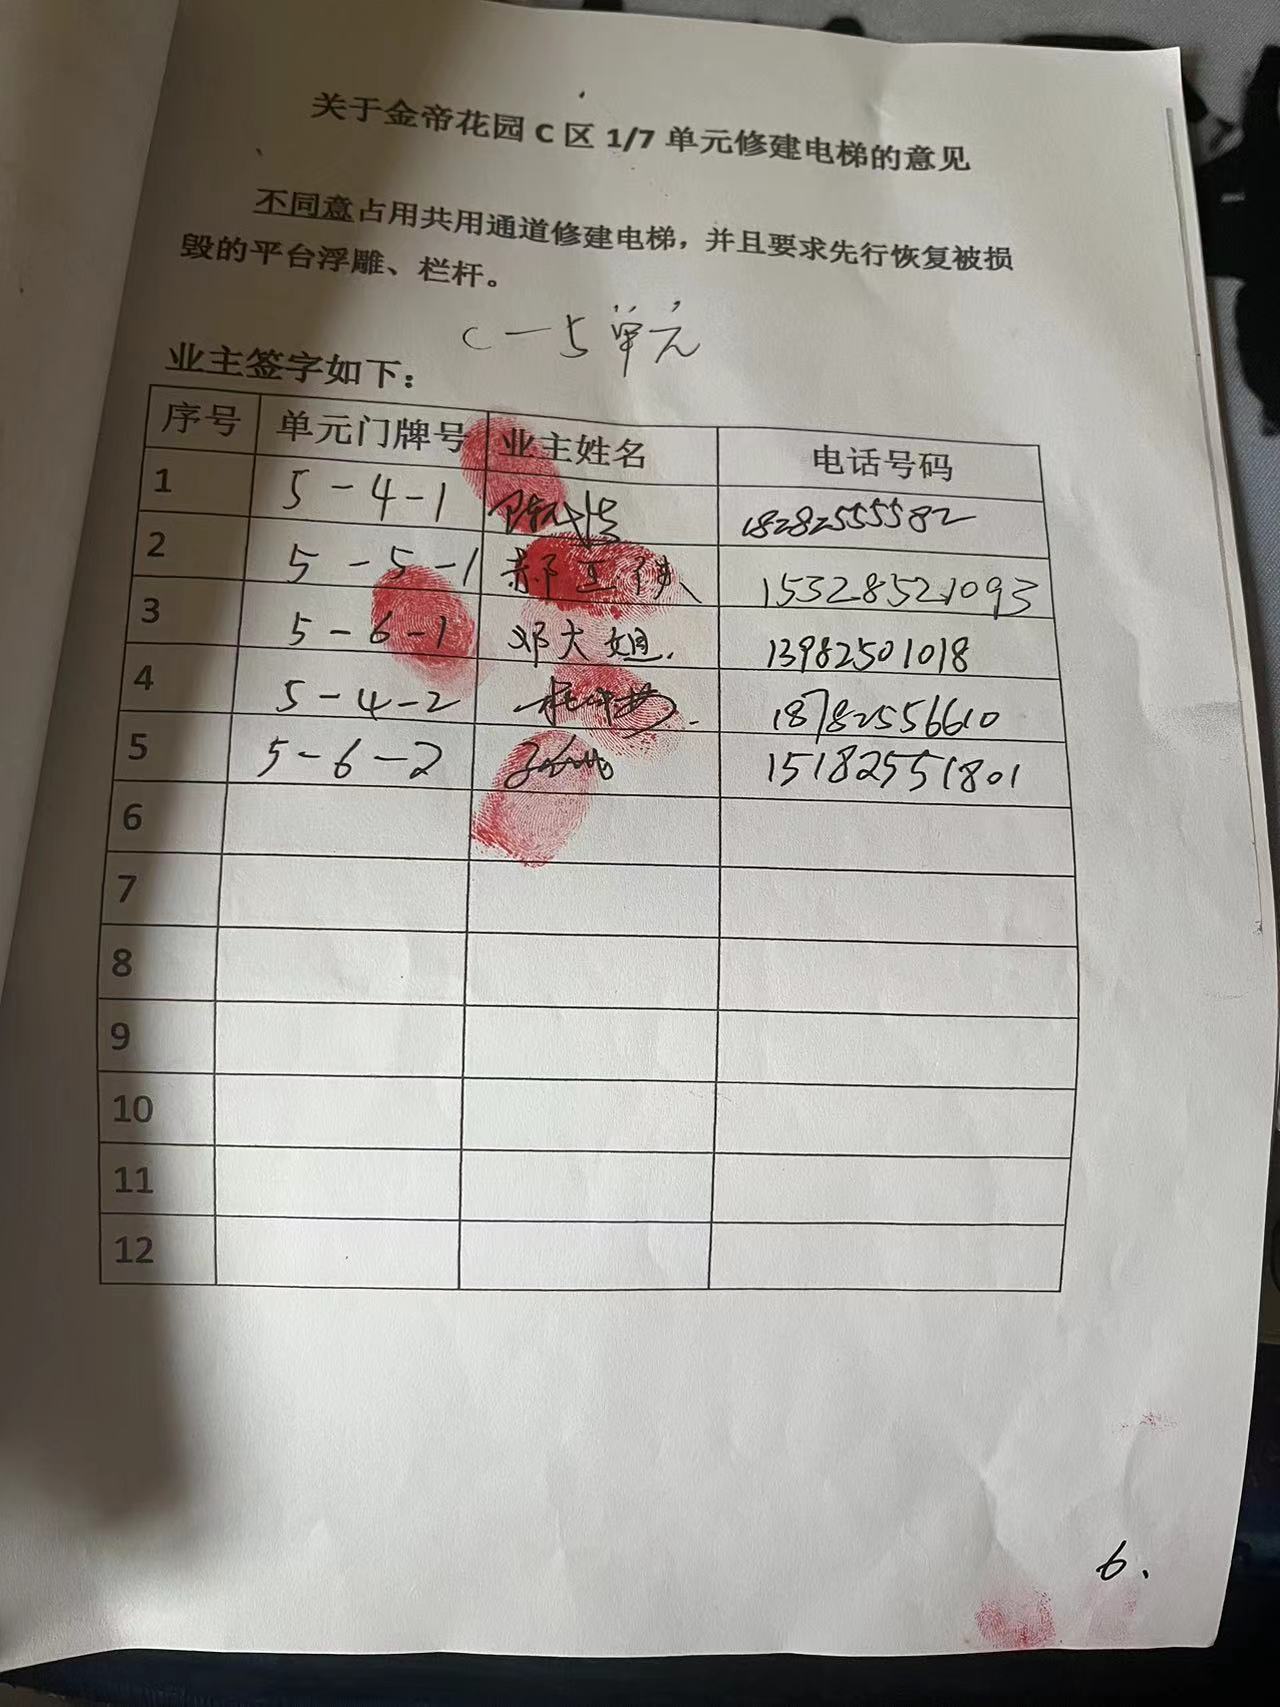 关于金帝花园 C 区 1/7 单元修建电梯的意见
不同意占用共用通道修建电梯，并且要求先行恢复被损
毁的平台浮雕、栏杆。
C-5单元
业主签字如下：
序号 单元门牌号 业主姓名 电话号码
1 5-4-1 18282555582
2 5-5-1 15328521093
3 5-6-1 邓大姐. 13982501018
4 5-4-2 18782556610
5 5-6-2 15182551801
6
7
8
9
10
11
12
6.